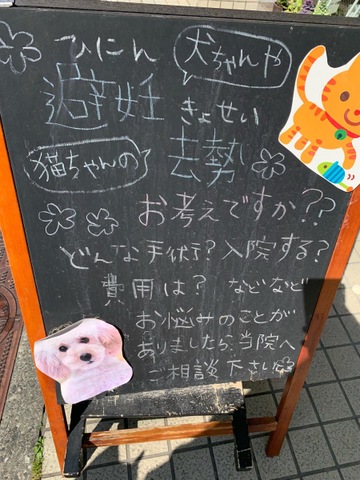 ひにん
犬ちゃんや
避妊
きょせい
猫ちゃんの
去勢
お考えですか??
どんな手術?入院する?
費用は? などなど
お悩みのことが
ありましたら当院へ
ご相談下さい